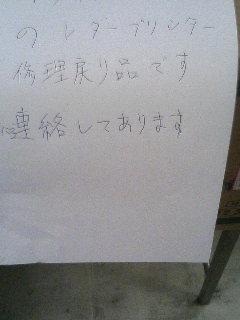 のレダープリンター
修理戻り品です
に連絡してあります